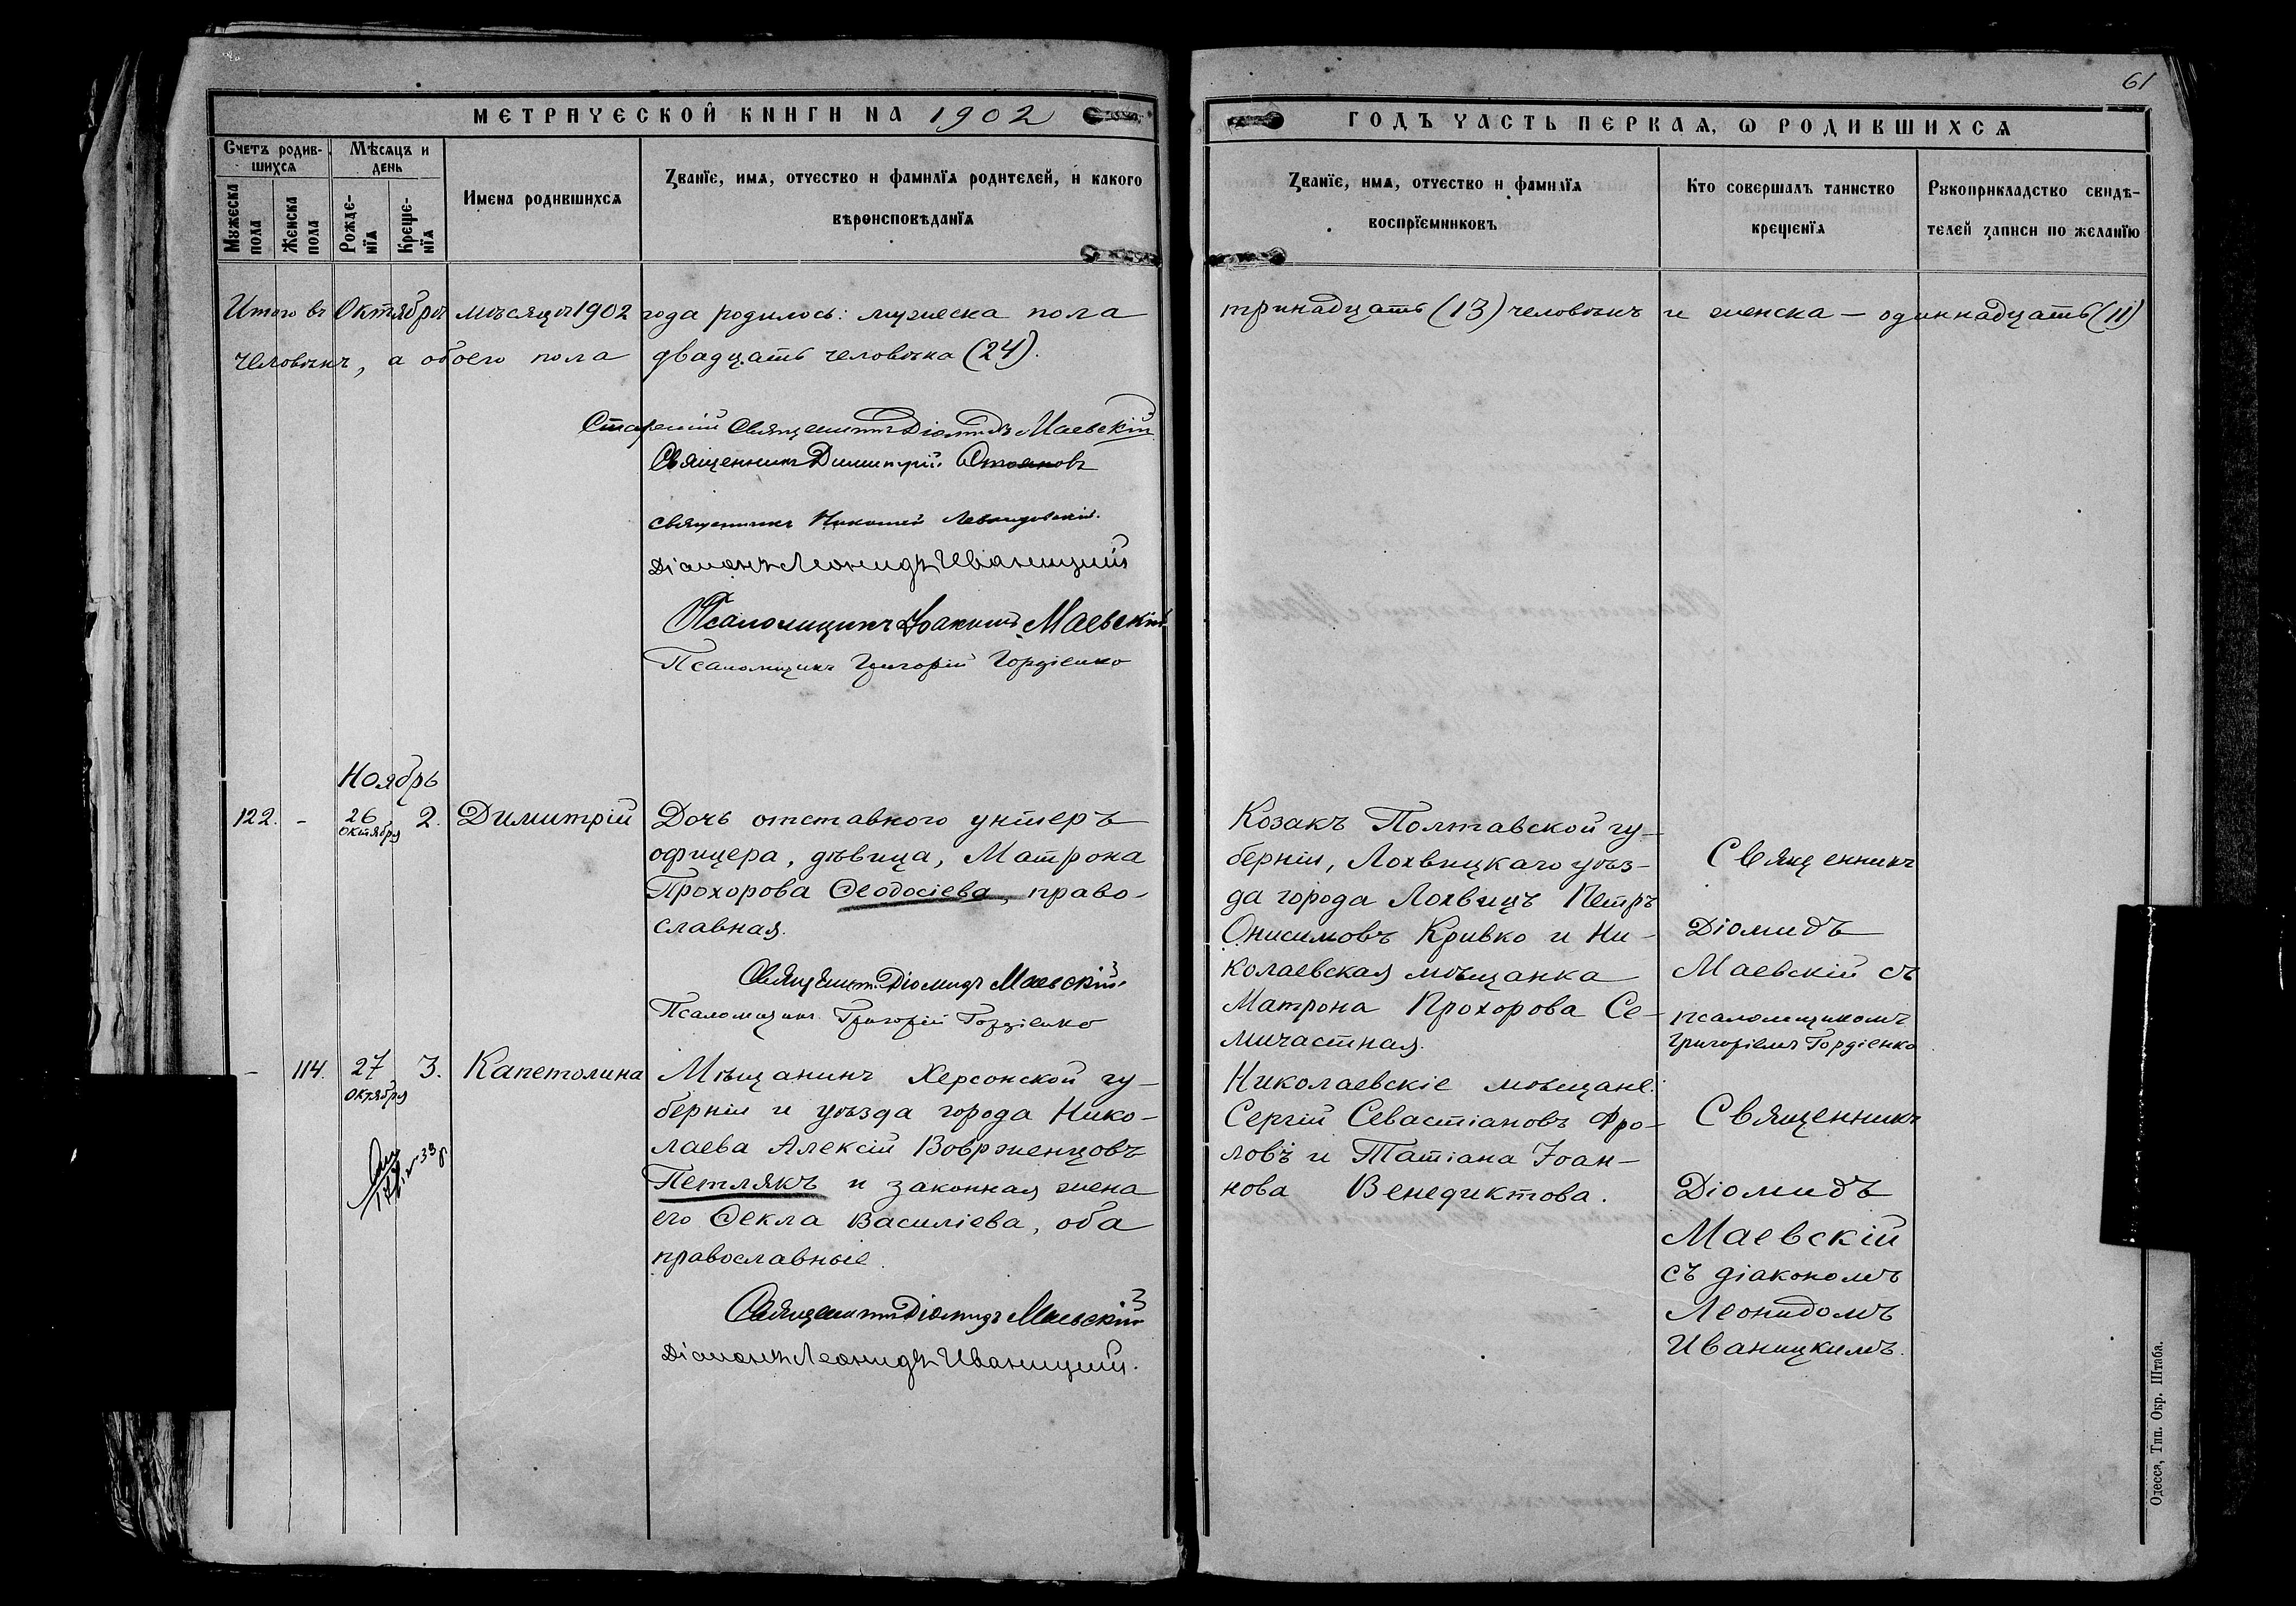 61
МЕТРИЧЕСКОЙ КНИГИ НА 1902
ГОДЪ ЧАСТЬ ПЕРВАЯ, Ѡ РОДИВШИХСѦ
Счетъ родившихсѧ
Мѣсѧцъ и день
Мужеска пола
Женска пола
Рожденїѧ
Крещенїѧ
Имена родившихсѧ
Званїе, имѧ, отчество и фамилїѧ родителей, и какого
вѣроисповѣданїѧ
Званїе, имѧ, отчество и фамилїѧ
воспрїемниковъ
Кто совершалъ таинство
крещенїѧ
Рукоприкладство свидѣ-
телей записи по желанїю
Итого въ Октябрѣ мѣсяцѣ 1902 года родилось: мужеска пола тринадцать (13) человѣкъ и женска — одиннадцать (11)
человѣкъ, а обоего пола двадцать человѣка (24).
Старшій Священникъ Діомидъ Маевскій
Священникъ Димитрій Стояновъ
Священникъ Николай Левандовскій.
Діаконъ Леонидъ Иваницкій
Псаломщикъ Іоакимъ Маевскій
Псаломщикъ Григорій Гордіенко
Ноябрь
122. - 26 октября 2. Димитрій
Дочь отставного унтеръ
офицера, дѣвица, Матрона
Прохорова Ѳеодосіева, право-
славная.
Священник Діомидъ Маевскій
Псаломщикъ Григорій Гордіенко
Козакъ Полтавской гу-
берніи, Лохвицкаго уѣз-
да города Лохвицъ Петръ
Онисимовъ Кривко и Ни-
колаевская мѣщанка
Матрона Прохорова Се-
мичастная.
Священникъ
Діомидъ
Маевскій съ
псаломщикомъ
Григоріемъ Гордіенко
- 114. 27 октября 3. Капетолина
Мѣщанинъ Херсонской гу-
берніи и уѣзда города Нико-
лаева Алексій Воврженцовъ
Петлякъ и законная жена
его Ѳекла Василіева, оба
православные.
Священникъ Діомидъ Маевскій
Діаконъ Леонидъ Иваницкій.
Николаевскіе мѣщане:
Сергій Севастіановъ Фро-
ловъ и Татіана Іоан-
нова Венедиктова.
Священникъ
Діомидъ
Маевскій
съ діакономъ
Леонидомъ
Иваницкимъ.
Одесса, Тип. Окр. Штаба.